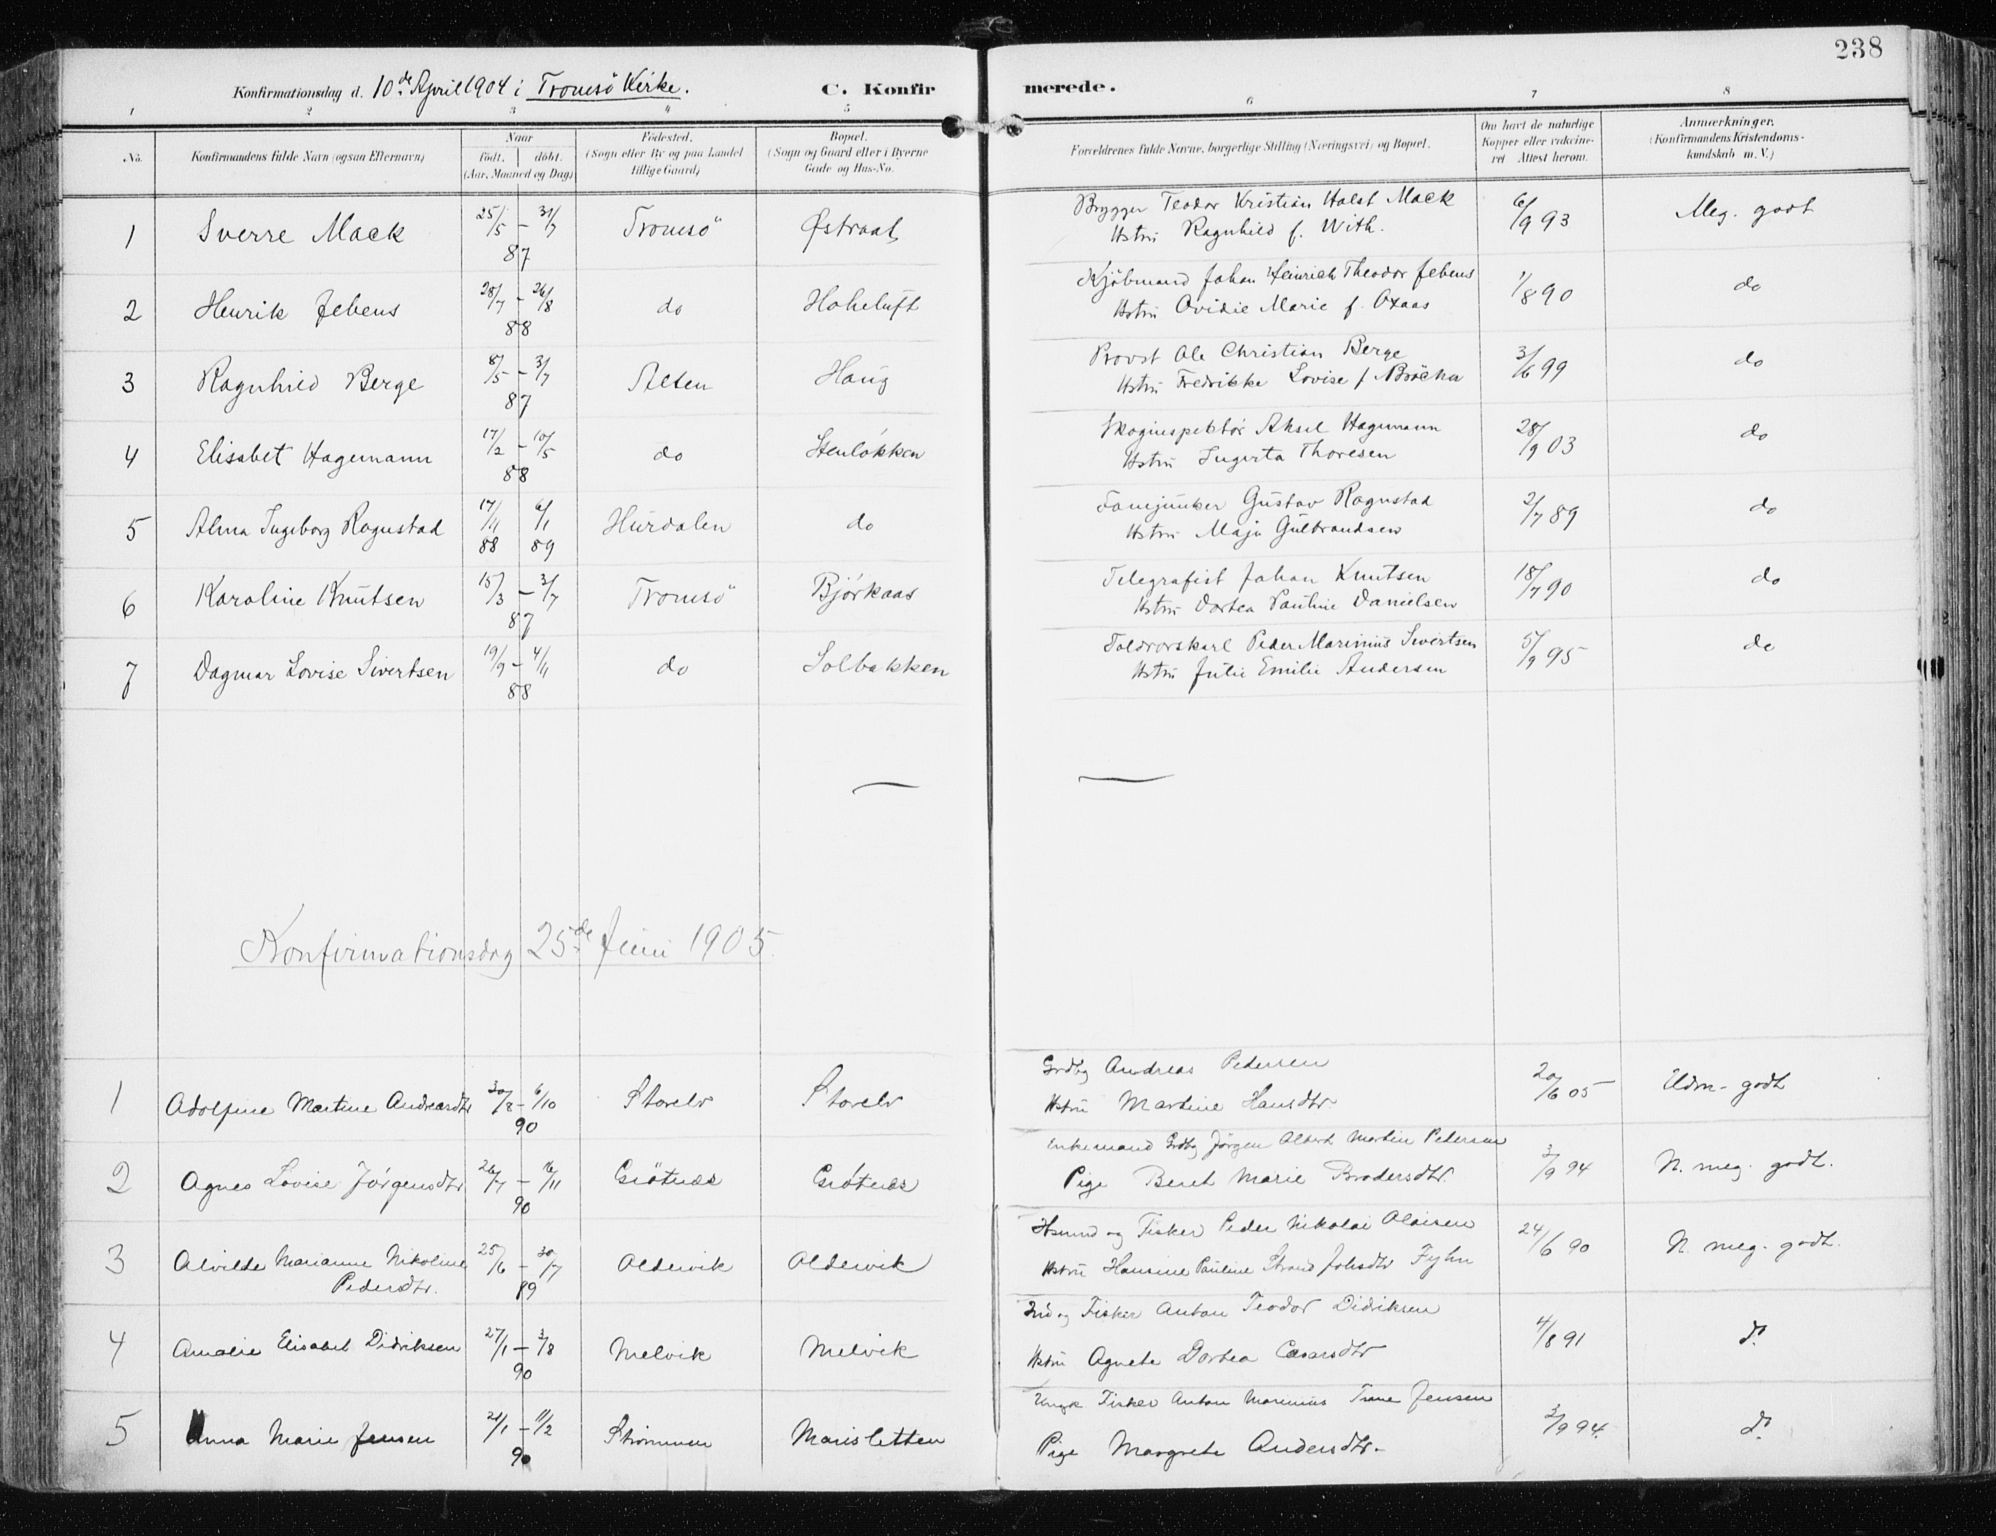 238
Konfirmationsdag d. 10de April 1904 i Tromsö Kirke. C. Konfirmerede.
1 2 3 4 5 6 7 8
No. Konfirmandens fulde Navn (ogsaa Efternavn) Naar født. døbt. (Aar, Maaned og Dag) Fødested. (Sogn eller By og paa Landet tillige Gaard) Bopæl. (Sogn og Gaard eller i Byerne Gade og Hus-No. Forældrenes fulde Navne, borgerlige Stilling (Næringsvei) og Bopæl. Om havt de naturlige Kopper eller vakcineret. Attest herom. Anmærkninger. (Konfirmandens Kristendomskundskab m. V.)
1 Sverre Mack 25/5 – 31/7 87 Tromsö Østraat Brygger Teodor Kristian Holst Mack
Hstru Ragnhild f. With. 6/9 93 Meg. godt
2 Henrik Jebens 28/7 – 26/8 88 do Hoheluft Kjöbmand Johan Heinrich Theodor Jebens
Hstru Ovidie Marie f. Oxaas 1/8 90 do
3 Ragnhild Berge 8/5 – 3/7 87 Alten Haug Provst Ole Christian Berge
Hstru Fredrikke Lovise f 3/6 99 do
4 Elisabet Hagemann 17/2 – 10/5 88 do Stenløkken Skoginspektør Aksel Hagemann
Hstru Ingerta Thoresen 28/9 03 do
5 Alma Ingeborg Rognstad 17/11 88 6/1 89 Hurdalen do Fanejunker Gustav Rognstad
Hstru Maja Gulbrandsen 2/7 89 do
6 Karoline Knutsen 15/3 – 3/7 87 Tromsö Bjørkaas Telegrafist Johan Knutsen
Hstru Dortea Pauline Danielsen 18/7 90 do
7 Dagmar Lovise Sivertsen 19/9 – 4/11 88 do Solbakken Toldrorskarl Peder Marinius Sivertsen
Hstru Julie Emilie Andersen 5/9 95 do
Konfirmationsdag 25de Juni 1905.
1 Adolfine Martine Andreasdtr 30/8 – 6/10 90 Storelv Storelv Grdbg Andreas Pedersen
Hstru Martine Hansdtr. 20/6 05 Udm. godt
2 Agnes Lovise Jørgensdtr 26/7 – 16/11 90 Grötnæs Grötnæs Enkemand Grdbg Jörgen Albert Martin Pedersen
Pige Beret Marie Brodersdtr. 3/9 94 N. meg. godt.
3 Alvilde Marianne Nikoline
Pedersdtr. 25/6 – 30/7 89 Oldervik Oldervik Hsmnd og Fisker Peder Nikolai Olaisen
Hstru Hansine Pauline Strand Johsdtr Fyhn 24/6 90 N. meg. godt.
4 Amalie Elisabet Didriksen 27/1 – 3/8 90 Melvik Melvik og Fisker Anton Teodor Didriksen
Hstru Agnete Dortea Cæsarsdtr 4/8 91 do
5 Anna Marie Jensen 21/1 – 11/2 90 Strömmen Marisletten Ungk Fisker Anton Marinius Trane Jensen
Pige Margrete Andersdtr. 3/9 94. do